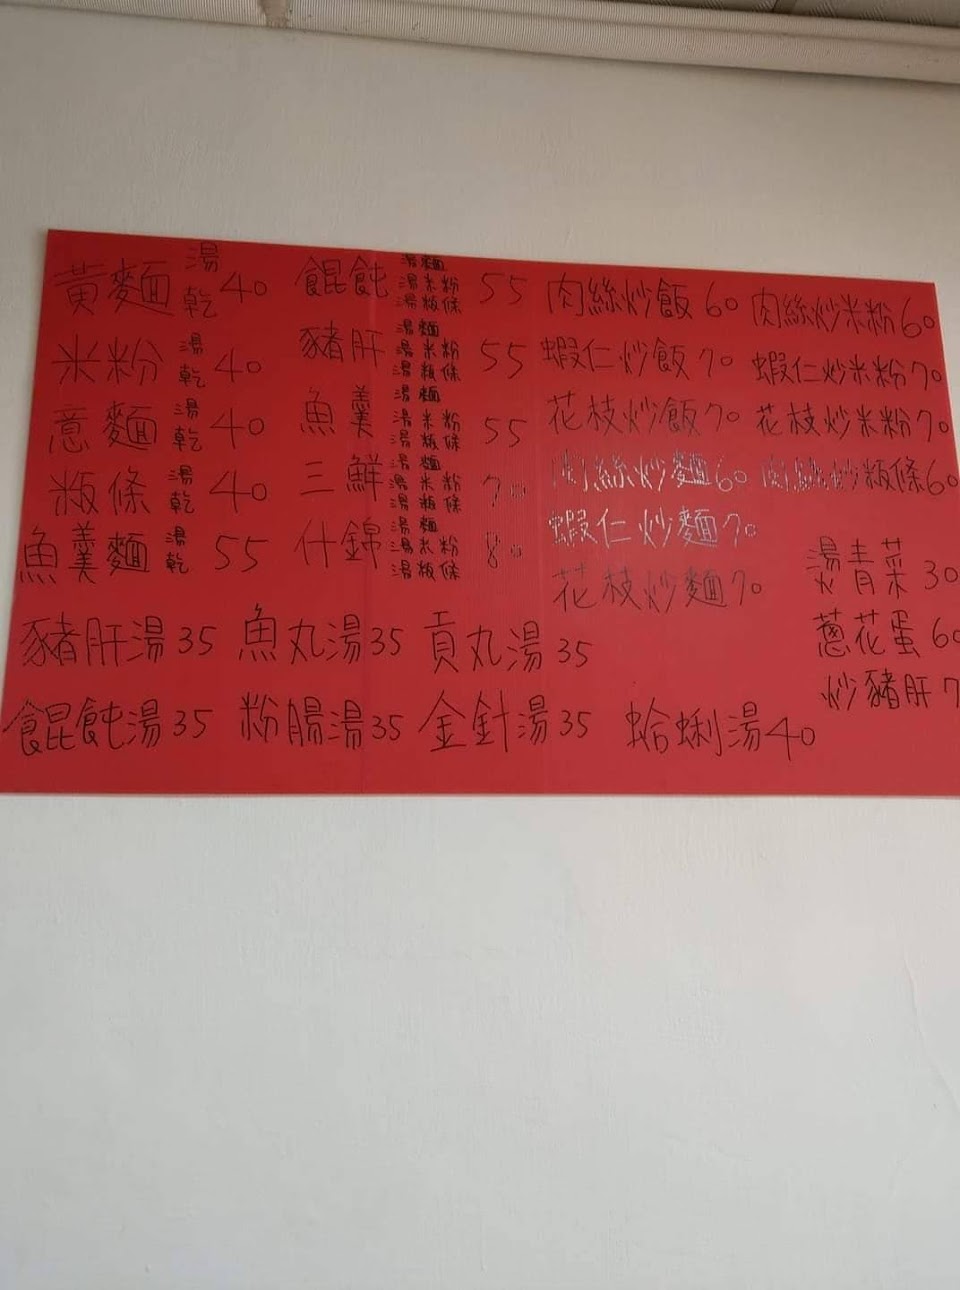 黃麵 湯 乾 40
米粉 湯 乾 40
意麵 湯 乾 40
粄條 湯 乾 40
魚羹麵 湯 乾 55
餛飩 湯麵 湯米粉 湯粄條 55
豬肝 湯麵 湯米粉 湯粄條 55
魚羹 湯麵 湯米粉 湯粄條 55
三鮮 湯麵 湯米粉 湯粄條 70
什錦 湯麵 湯米粉 湯粄條 80
肉絲炒飯 60
蝦仁炒飯 70
花枝炒飯 70
肉絲炒麵 60
蝦仁炒麵 70
花枝炒麵 70
肉絲炒米粉 60
蝦仁炒米粉 70
花枝炒米粉 70
肉絲炒粄條 60
燙青菜 30
蔥花蛋 60
炒豬肝 7
豬肝湯 35 魚丸湯 35 貢丸湯 35
餛飩湯 35 粉腸湯 35 金針湯 35 蛤蜊湯 40